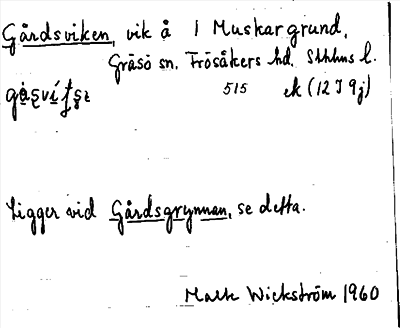 Gårdsviken, vik å 1 Muskargrund,
Gräsö sn. Frösåkers hd. Sthlms l.
515 ek (12 I 9j)
Ligger vid Gårdsgrynnan, se detta.
Wickström 1960